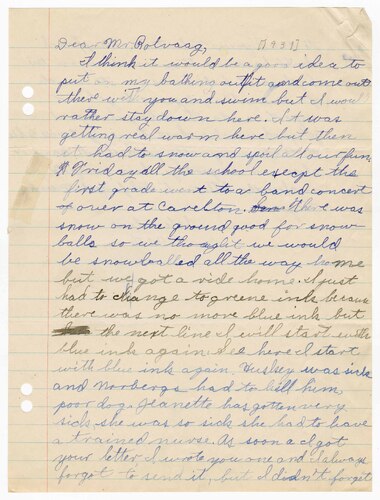 Dear Mr. Rolvaag, [1931]
I think it would be a good idea to
put on my bathing outfit and come out
there with you and swim but I woul
rather stay down here. It was
getting real warm here but then
it had to snow and spoil all our fun.
Friday all the school escept the
first grade went to a band concert
over at Carelton. There was
snow on the ground good for snow
balls so we thought we would
be snowballed all the way home
but we got a ride home. I just
had to change to greene ink because
there was no more blue ink but
the next line I will start with
blue ink again. See here I start
with blue ink again. was sick
and Norbergs had to kill him,
poor dog. Jeanette has gotten very
sick she was so sick she had to have
a trained nurse. As soon as I got
your letter I wrote you one and I always
forgot to send it, but I didn't forget